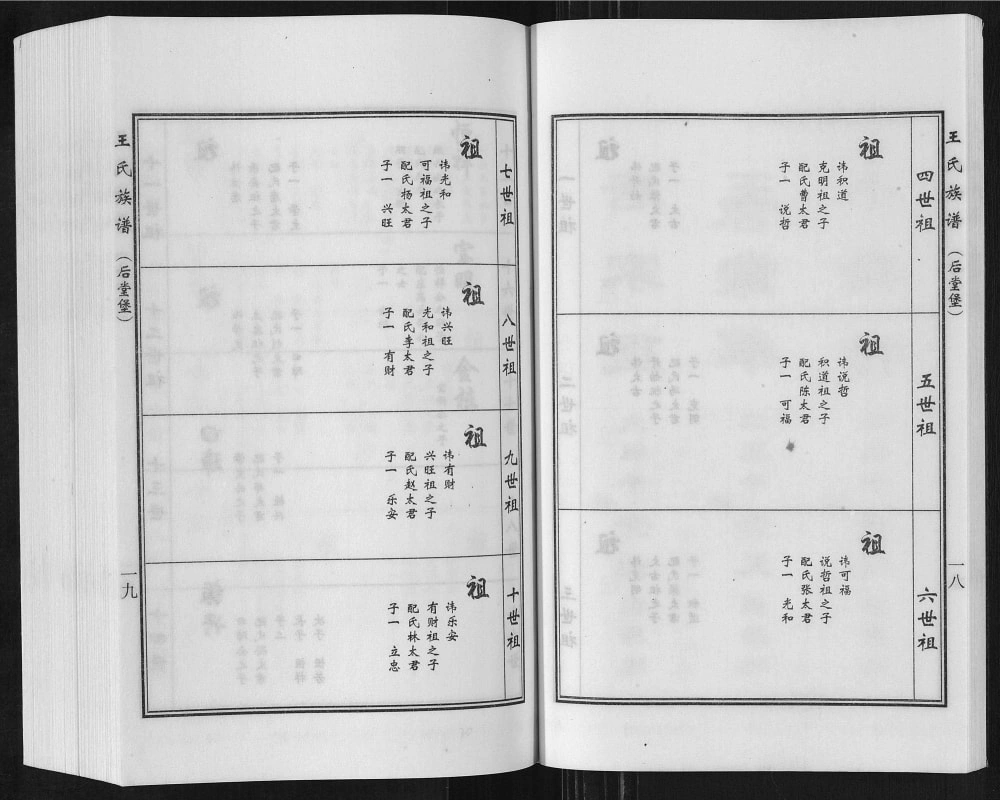 王氏族谱（后堂堡）
一八
四世祖
祖
讳积道
克明祖之子
配氏曹太君
子一 说哲
五世祖
祖
讳说哲
积道祖之子
配氏陈太君
子一 可福
六世祖
祖
讳可福
说哲祖之子
配氏张太君
子一 光和
七世祖
祖
讳光和
可福祖之子
配氏杨太君
子一 兴旺
八世祖
祖
讳兴旺
光和祖之子
配氏李太君
子一 有财
九世祖
祖
讳有财
兴旺祖之子
配氏赵太君
子一 乐安
十世祖
祖
讳乐安
有财祖之子
配氏林太君
子一 立忠
王氏族谱（后堂堡）
一九